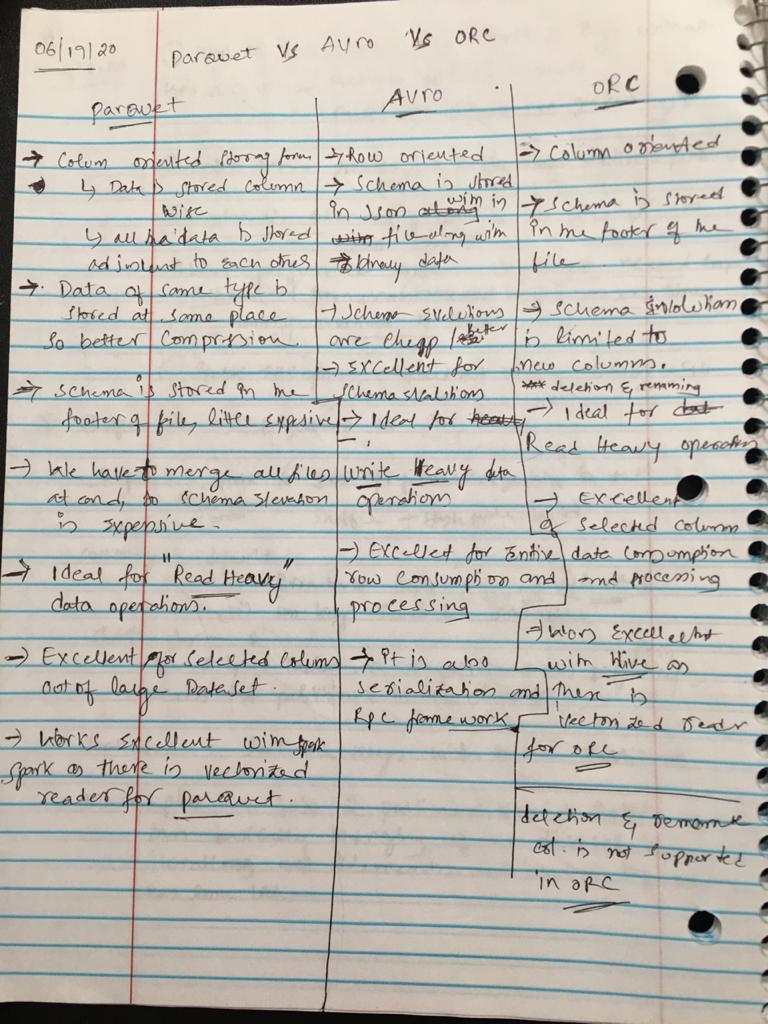 06/19/20
Parquet Vs Avro Vs ORC
Parquet
→ Colum oriented storag form
↳ Data is stored column
wise
↳ all the data is stored
adjusent to each other
→ Data of same type is
stored at same place
so better Comprssion.
→ Schema is stored in the
footer of file, little expsive
→ We have to merge all files
at end, so schema
is expensive.
→ Ideal for "Read Heavy"
data operations.
→ Excellent for selected column
out of large Dataset.
→ Works excellent with
spark as there is vectorized
reader for parquet.
AVro
→ Row oriented
→ Schema is stored
in Json with in
file along with
binary data
→ Schema evolutions
are cheap / better
→ Excellent for
schema evalutions
→ Ideal for
Write Heavy data
operations
→ Excellet for Entire
row consumption and
processing
→ It is also
serialization and
Rpc framework
ORC
→ Column oriented
→ Schema is stored
in the footer of the
file
→ Schema
is limited to
new columns.
deletion & renaming
→ Ideal for
Read Heavy operation
→ Excellent
of selected column
data consumption
and processing
→ Works Excellent
with Hive as
there is
vectorized reader
for ORC
deletion &
col. is not supported
in ORC